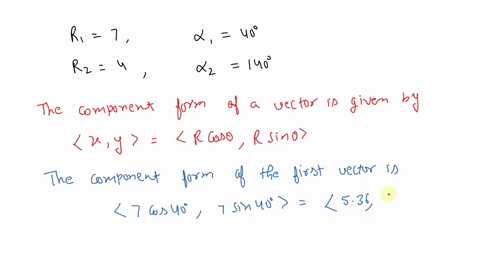 R₁ = 7, α₁ = 40°
R₂ = 4, α₂ = 140°
The component form of a vector is given by
< x, y > = < R cosθ, R sinθ >
The component form of the first vector is
< 7 cos 40°, 7 sin 40° > = < 5.36,